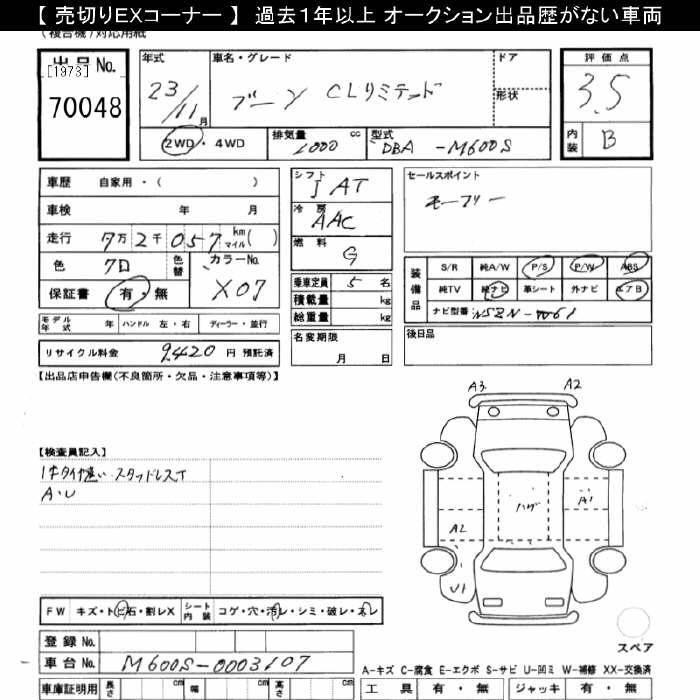 【 売切りEXコーナー 】 過去1年以上 オークション出品歴がない車両
(複合機)対応用紙
出品No.
[1973]
70048
年式
23/11月
車名・グレード
ブーン CLリミテード
ドア
形状
評価点
3.5
内装 B
2WD・4WD
排気量 1000 cc
型式 DBA -M600S
車歴 自家用・( )
車検 年 月
走行 7万2千057 km マイル( )
色 クロ 色替 カラーNo. X07
保証書 有・無
モデル年式 年 ハンドル 左・右 ディーラー・並行
リサイクル料金 9420 円 預託済
シフト IAT
冷房 AAC
燃料 G
乗車定員 5 名
積載量 kg
総重量 kg
名変期限
月 日
セールスポイント
装備品
S/R 純A/W P/S P/W ABS
純TV 純ナビ 革シート 外ナビ エアB
ナビ型番 NSZN-
後日品
【出品店申告欄(不良箇所・欠品・注意事項等)】
【検査員記入】
スタッドレスT
A・U
A3 A2
ハゲ A1
A2
U1
スペア
FW キズ・トビ石・割レX シート内装 コゲ・穴・汚レ・シミ・破レ・スレ
登録No.
車台No. M600S-0003107
車庫証明用 長さ cm 幅 cm 高さ cm
A-キズ C-腐食 E-エクボ S-サビ U-凹ミ W-補修 XX-交換済
工具 有・無 ジャッキ 有・無